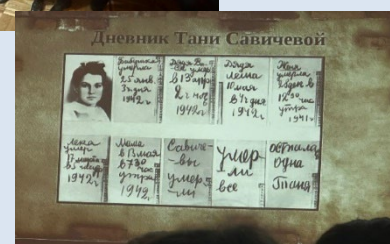 Дневник Тани Савичевой
Бабушка
умерла
25 янв.
3ч дня
1942 г
Дядя
умер
в 13 апр
2 ч ноч
1942 г
Дядя
Лёша
10 мая
в 4ч дня
1942 г
Женя
умерла
28 дек
в
12 30 час
утра
1941 г
Лека
умер
17 марта
1942 г
Мама
в 13 мая
в 7 30
час
утра
1942 г
Савиче-
-вы
умер-
-ли
умер-
ли
все
осталась
одна
Таня